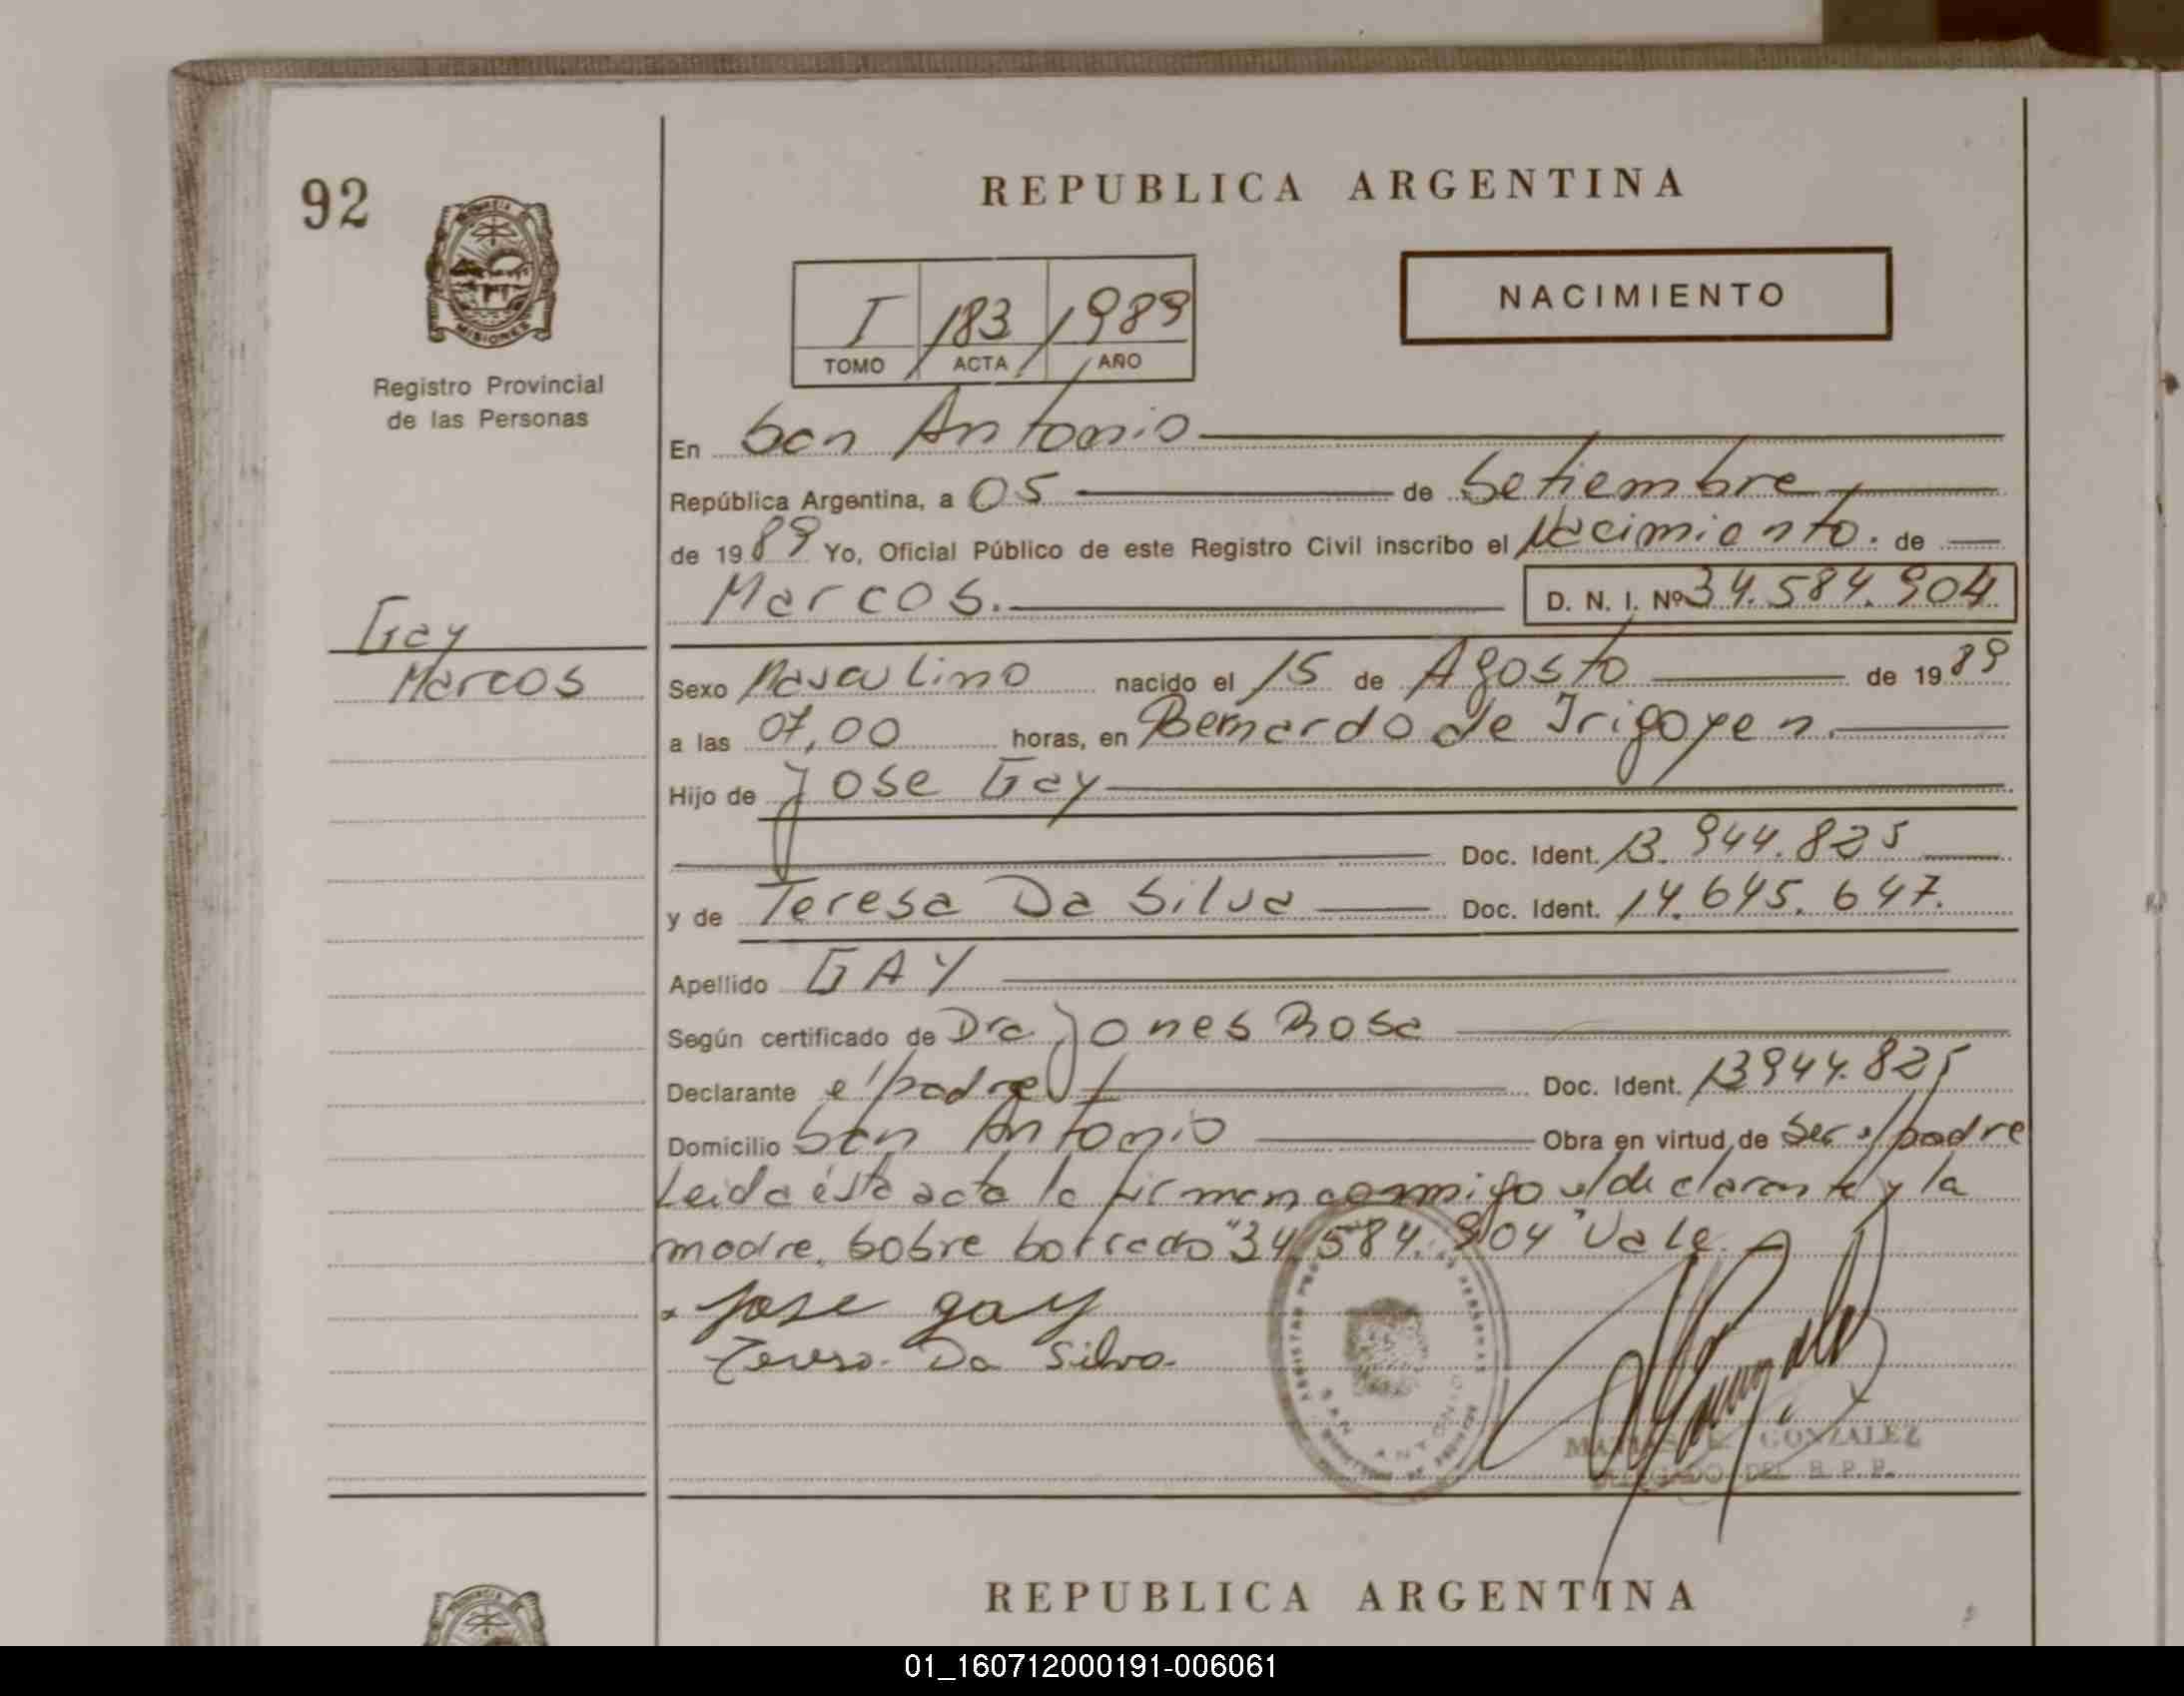 92
REPUBLICA ARGENTINA
NACIMIENTO
MISIONES
Registro Provincial
de las Personas
I 183 1989
TOMO ACTA AÑO
En San Antonio
República Argentina, a 05 de Setiembre
de 1989 Yo, Oficial Público de este Registro Civil inscribo el Nacimiento. de
Marcos. D. N. I. Nº 34.584.904
Gay
Marcos
Sexo Masculino nacido el 15 de Agosto de 1989
a las 07,00 horas, en Bernardo de Irigoyen.
Hijo de Jose Gay
Doc. Ident. 13.944.825
y de Teresa Da Silva Doc. Ident. 14.645.647.
Apellido GAY
Según certificado de Dra. Jones Rosa
Declarante el padre Doc. Ident. 13944.825
Domicilio San Antonio Obra en virtud de Ser el padre
Leida ésta acta la firman conmigo el declarante y la
madre, Sobre borrado "34.584.904" Vale.
Jose gay
Teresa Da Silva
SAN ANTONIO
GONZALEZ
DEL R. P. P.
REPUBLICA ARGENTINA
01_160712000191-006061